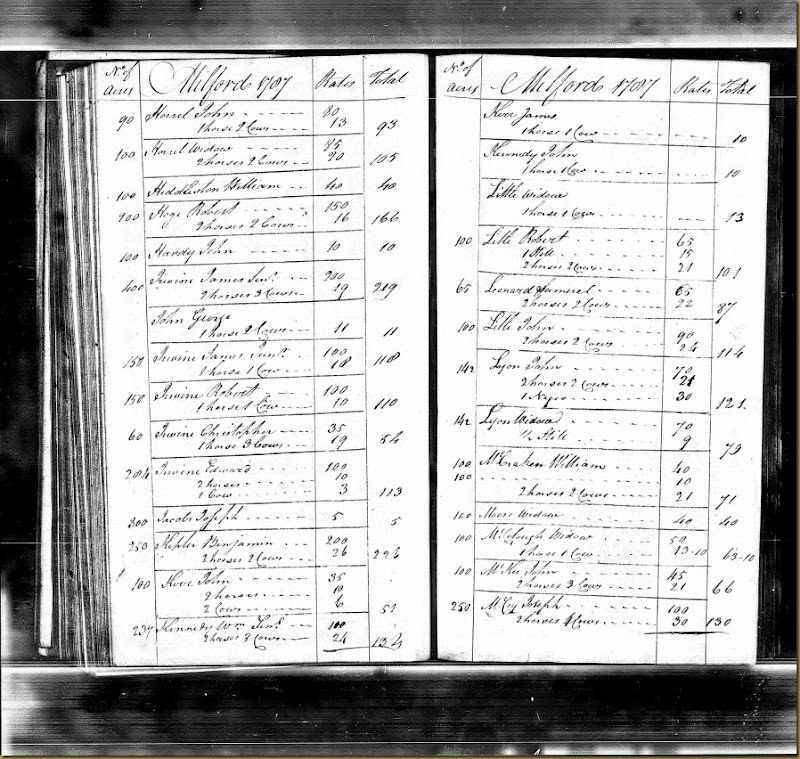 No. of acres Milford 1787 Rates Total
90 Horrel John 80
1 horse 2 Cows 13 93
100 Horrel Widow 85
2 horses 2 Cows 20 105
100 Huddleston William 40 40
200 Hoge Robert 150
2 horses 2 Cows 16 166
100 Hardy John 10 10
400 Irwine James Senr. 200
2 horses 3 Cows 19 219
John George
1 horse 2 Cows 11 11
150 Irwine James Junr. 100
1 horse 1 Cow 18 118
150 Irwine Robert 100
1 horse 1 Cow 10 110
60 Irwine Christopher 35
1 horse 3 Cows 19 54
284 Irwine Edward 100
2 horses 10
1 Cow 3 113
300 Jacobs Joseph 5 5
250 Kepler Benjamin 200
2 horses 2 Cows 26 226
100 Kerr John 35
2 horses 10
2 Cows 6 51
237 Kennedy Wm. Senr. 100
2 horses Cows 24
No. of acres Milford 1787 Rates Total
Kerr James
1 horse 1 Cow 10
Kennedy John
1 horse 1 Cow 10
Little Widow
1 horse 1 Cow 13
100 Little Robert 65
1 Still 15
2 horses 2 Cows 21 101
65 Leonard 65
2 horses 2 Cows 22 87
100 Little John 90
2 horses 2 Cows 24 114
142 Lyon John 70
2 horses 2 Cows 21
1 Negro 30 121
142 Lyon Widow 70
1/2 Still 9 79
100 McCraken William 40
100 10
2 horses 2 Cows 21 71
100 Moore Widow 40 40
100 Widow 50
1 horse 1 Cow 13-10 63-10
100 McKee John 45
2 horses 3 Cows 21 66
250 McCoy Joseph 100
2 horses 4 Cows 30 130